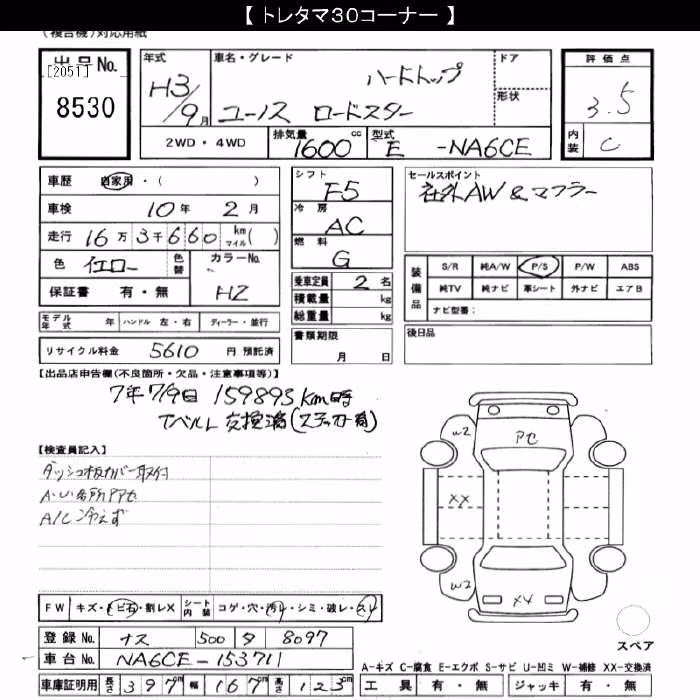 【 トレタマ３０コーナー 】
(複合機)対応用紙
出品No.
[2051]
8530
年式
H3/9月
車名・グレード
ハードトップ
ユーノス ロードスター
ドア
形状
評価点
3.5
内装
C
2WD・4WD
排気量
1600 cc
型式
E -NA6CE
車歴 自家用・( )
車検 10年 2月
走行 16万3千660 km マイル( )
色 イエロー 色替 カラーNo.
保証書 有・無 HZ
モデル年式 年 ハンドル 左・右 ディーラー・並行
リサイクル料金 5610 円 預託済
シフト
F5
冷房
AC
燃料
G
乗車定員 2 名
積載量 kg
総重量 kg
書類期限
月 日
セールスポイント
社外AW & マフラー
装備品
S/R 純A/W P/S P/W ABS
純TV 純ナビ 革シート 外ナビ エアB
ナビ型番：
後日品
【出品店申告欄(不良箇所・欠品・注意事項等)】
7年7/9日 159893km時
Tベルト 交換済(ステッカー有)
【検査員記入】
ダッシュ板カバー取付
A・U各所アアセ
A/C冷えず
W2
アセ
XX
W2
X4
スペア
FW キズ・トビ石・割レX シート内装 コゲ・穴・汚レ・シミ・破レ・スレ
登録No. ナス 500 タ 8097
車台No. NA6CE-153711
車庫証明用 長さ 397cm 幅 167cm 高さ 123cm
A-キズ C-腐食 E-エクボ S-サビ U-凹ミ W-補修 XX-交換済
工具 有・無 ジャッキ 有・無